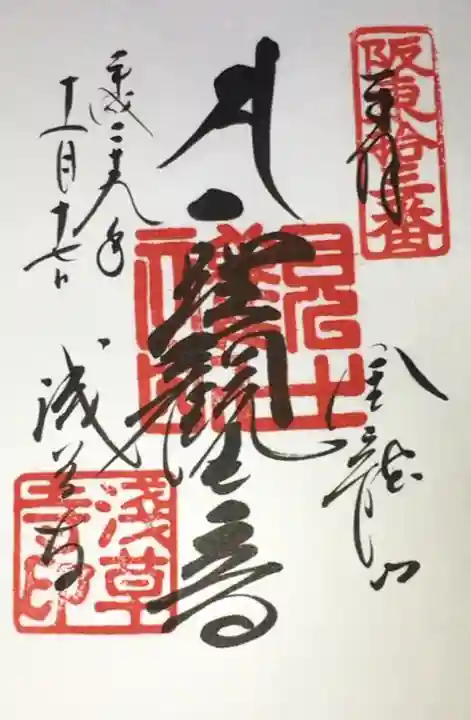 阪東拾三番
奉拝
金龍山
聖観世音
浅草寺
淺草寺印
平成二十九年
十一月十七日